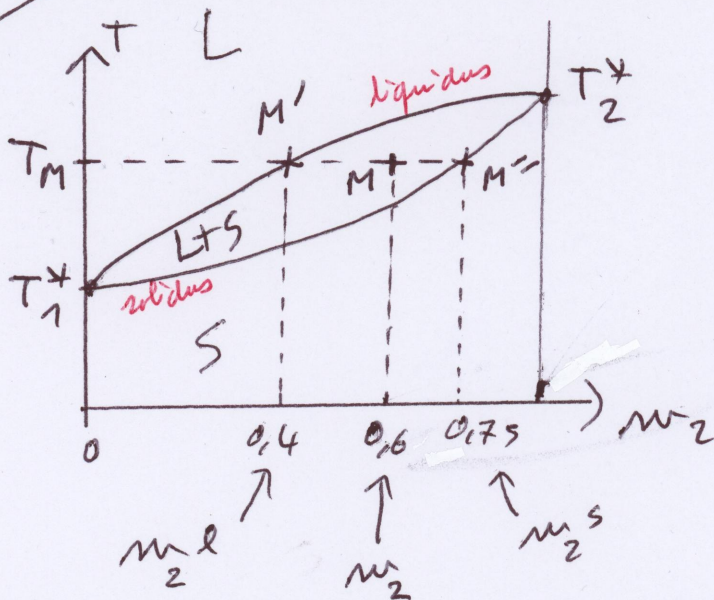 T L
liquidus
T₂*
M'
T_M
M M''
L+S
T₁*
solidus
S
0 0,4 0,6 0,75 w₂
w₂ˡ w₂ w₂ˢ